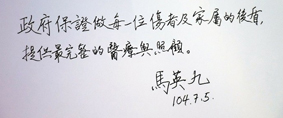 政府保證做每一位傷者及家屬的後盾，
提供最完整的醫療與照顧。
馬英九
104.7.5.